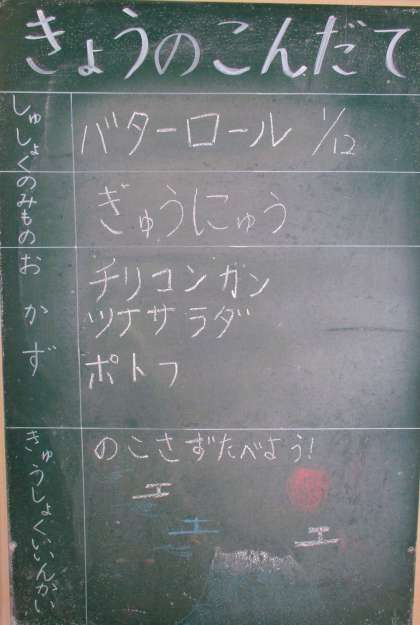 きょうのこんだて
しゅしょく
バターロール 1/12
のみもの
ぎゅうにゅう
おかず
チリコンガン
ツナサラダ
ポトフ
きゅうしょくいいんかい
のこさずたべよう!